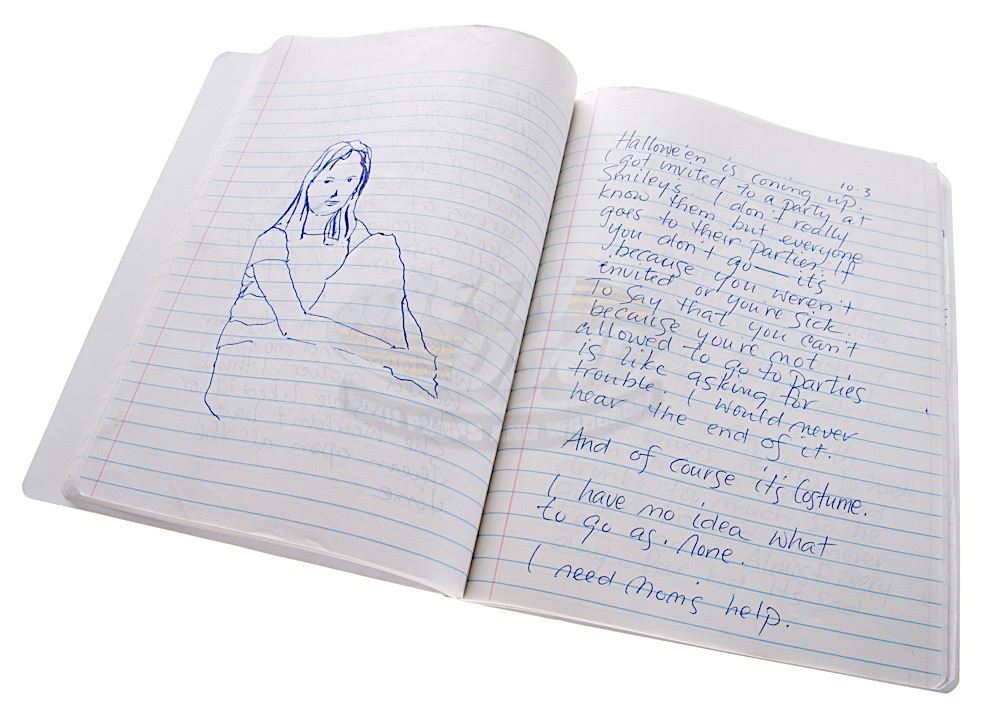 10.3
Hallowe'en is coming up.
I got invited to a party at
Smileys. I don't really
know them but everyone
goes to their parties. If
you don't go — it's
because you weren't
invited or you're sick.
To say that you can't
because you're not
allowed to go to parties
is like asking for
trouble. I would never
hear the end of it.
And of course it's Costume.
I have no idea what
to go as. None.
I need Mom's help.